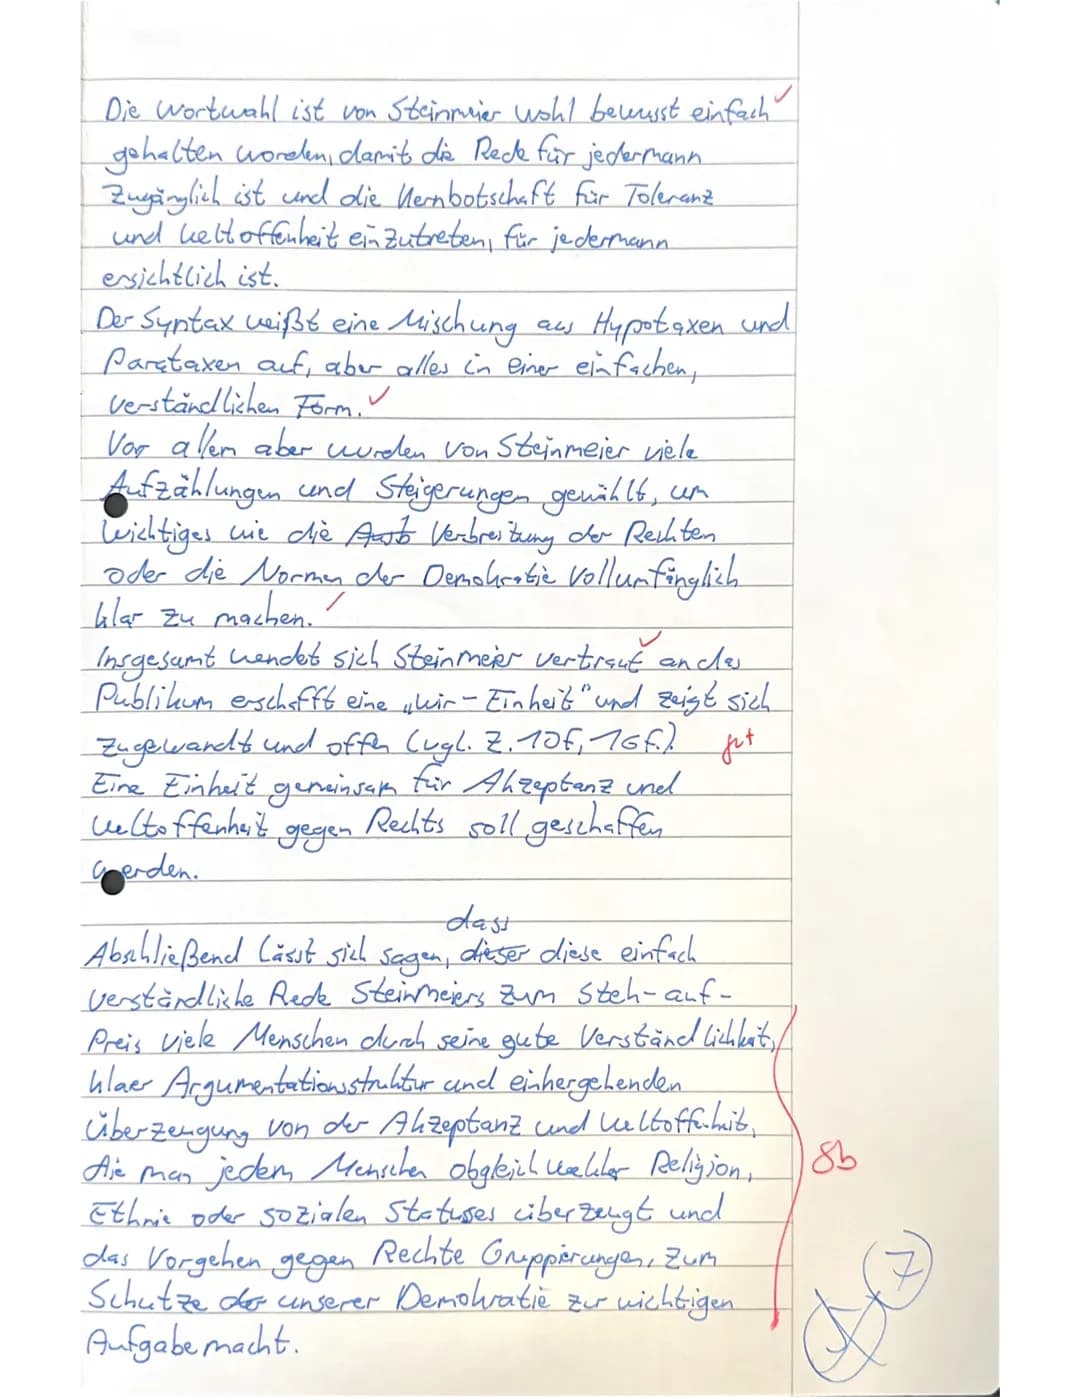 Die Wortwahl ist von Steinmeier wohl bewusst einfach
gehalten worden, damit die Rede für jedermann
Zugänglich ist und die Kernbotschaft für Toleranz
und Weltoffenheit einzutreten, für jedermann
ersichtlich ist.
Der Syntax weißt eine Mischung aus Hypotaxen und
Parataxen auf, aber alles in einer einfachen,
verständlichen Form.
Vor allem aber wurden von Steinmeier viele
Aufzählungen und Steigerungen gewählt, um
Wichtiges wie die Verbreitung der Rechten
oder die Normen der Demokratie Vollumfänglich
klar zu machen.
Insgesamt wendet sich Steinmeier vertraut an das
Publikum erschafft eine „Wir-Einheit" und zeigt sich
zugewandt und offen (vgl. Z. 10f, 16f.) gut
Eine Einheit gemeinsam für Akzeptanz und
Weltoffenheit gegen Rechts soll geschaffen
werden.
dass
Abschließend lässt sich sagen, dieser diese einfach
verständliche Rede Steinmeiers zum Steh-auf-
Preis viele Menschen durch seine gute Verständlichkeit,
klaer Argumentationsstruktur und einhergehenden
Überzeugung von der Akzeptanz und Weltoffenheit,
die man jedem Menschen obgleich welcher Religion, 8b
Ethnie oder sozialen Statuses überzeugt und
das Vorgehen gegen Rechte Gruppierungen, zum
Schutze der unserer Demokratie zur wichtigen
Aufgabe macht.
7